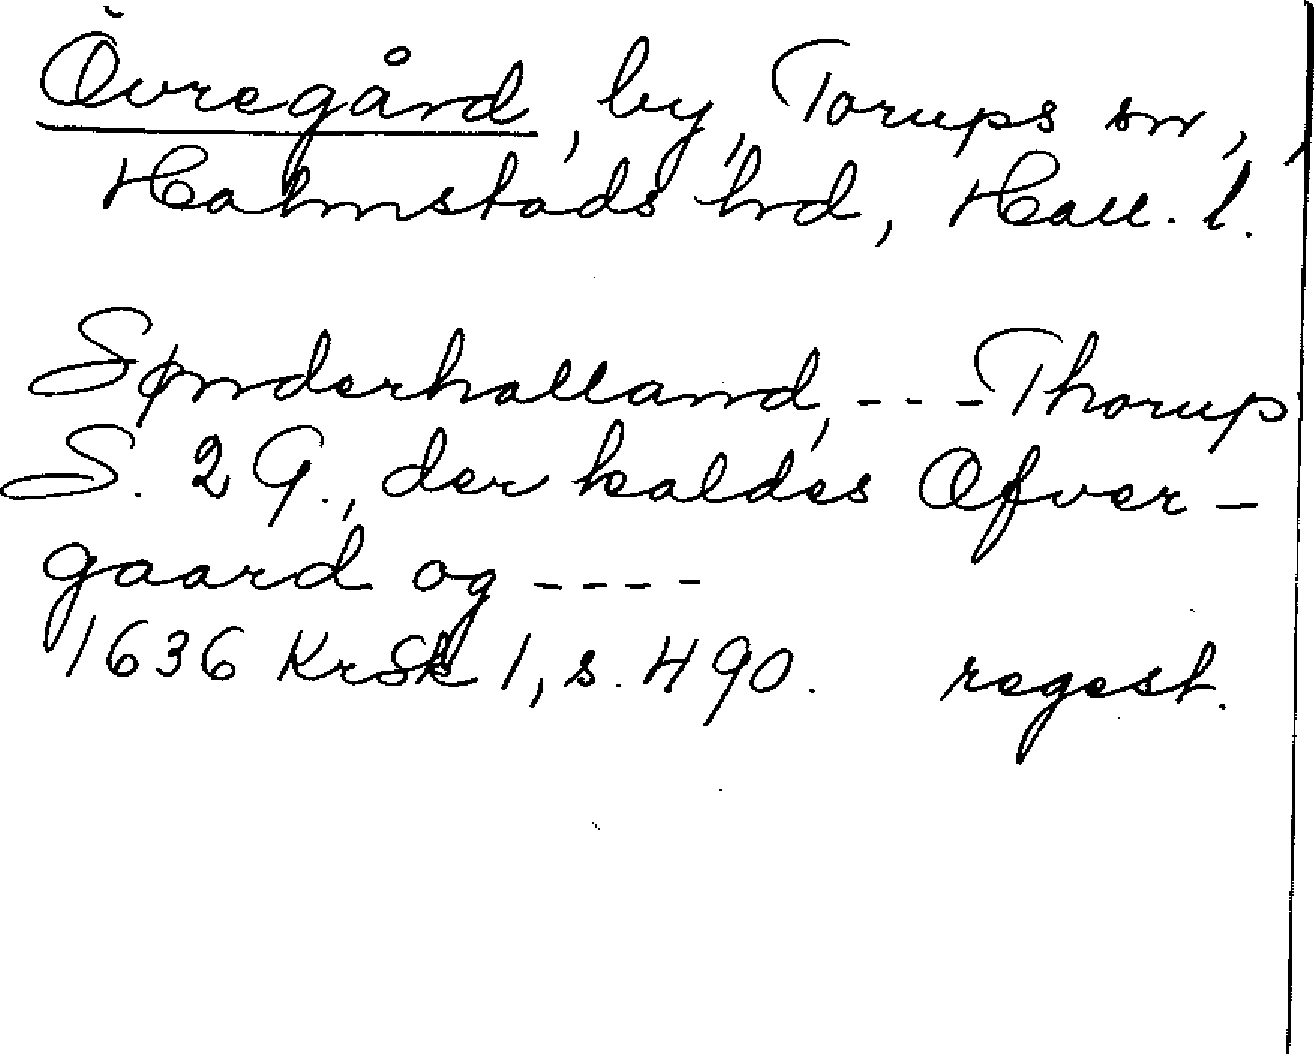 Övregård, by, Torups sn,
Halmstads hrd, Hall. l.
Sønderhalland, - - - Thorup
S. 2 G., der kaldes Øfver-
gaard og - - - -
1636 KrSk 1, s. 490. regest.